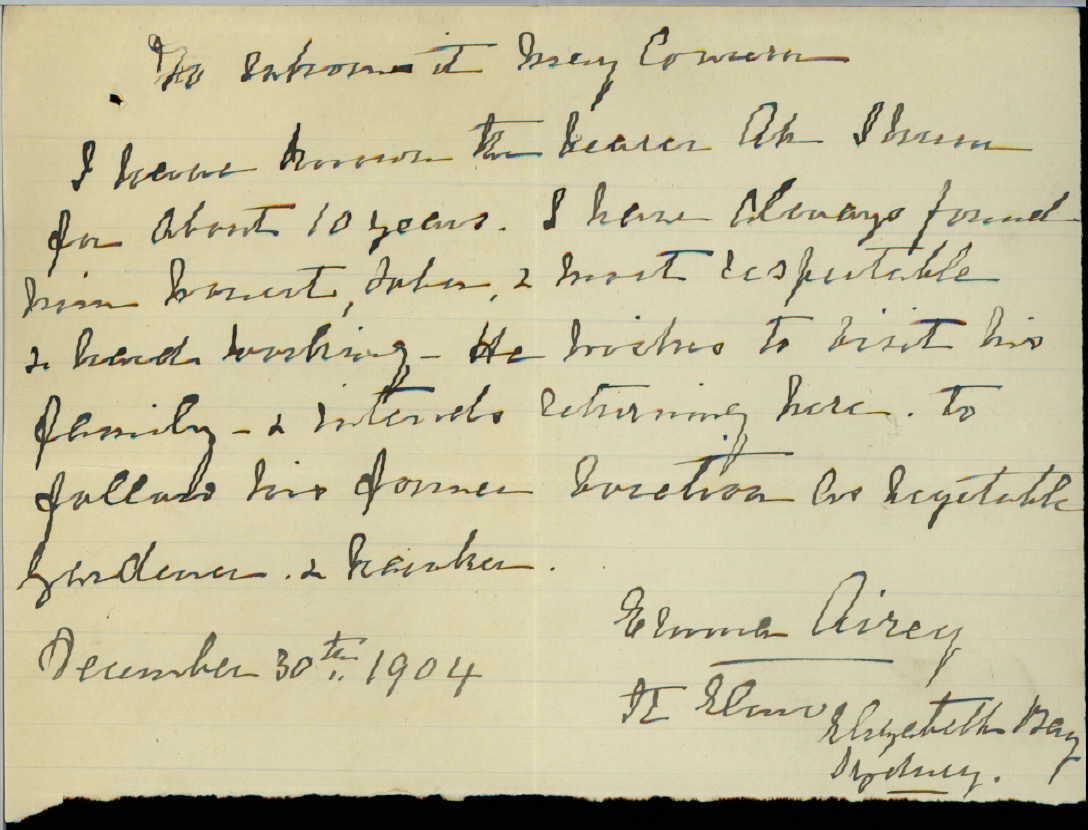 To whom it may Concern
I have known the bearer Ah Shum
for about 10 years. I have always found
him honest, sober, & most respectable
& hard working - He wishes to visit his
family - & intends returning here. to
follow his former vocation as vegetable
gardener. & hawker.
Emma Airey
December 30th. 1904
Elizabeth Bay
Sydney.